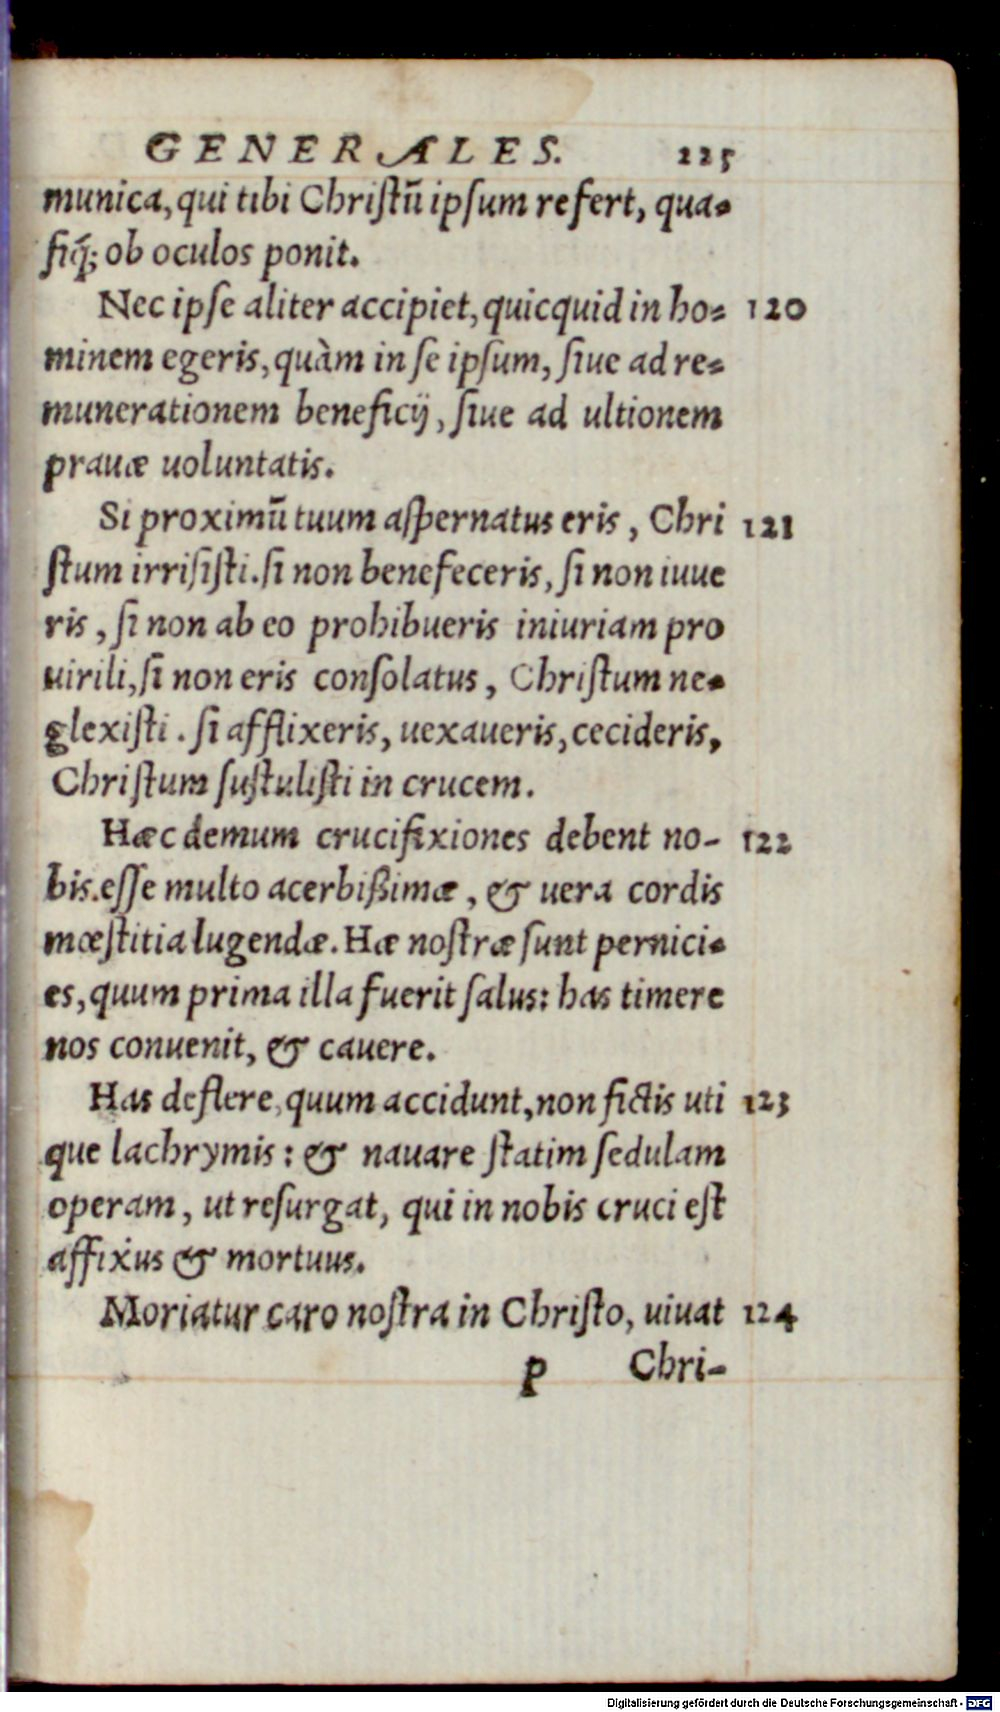 GENERALES. 225
munica, qui tibi Chriſtū ipſum refert, qua-
ſiq́; ob oculos ponit.
Nec ipſe aliter accipiet, quicquid in ho- 120
minem egeris, quàm in ſe ipſum, ſiue ad re-
munerationem beneficij, ſiue ad ultionem
prauæ uoluntatis.
Si proximū tuum aſpernatus eris, Chri 121
ſtum irriſiſti. ſi non benefeceris, ſi non iuue
ris, ſi non ab eo prohibueris iniuriam pro
uirili, ſi non eris conſolatus, Chriſtum ne-
glexiſti. ſi afflixeris, uexaueris, cecideris,
Chriſtum ſuſtuliſti in crucem.
Hæc demum crucifixiones debent no- 122
bis.eſſe multo acerbißimæ, & uera cordis
mœſtitia lugendæ. Hæ noſtræ ſunt pernici-
es, quum prima illa fuerit ſalus: has timere
nos conuenit, & cauere.
Has deflere, quum accidunt, non fictis uti 123
que lachrymis: & nauare ſtatim ſedulam
operam, ut reſurgat, qui in nobis cruci eſt
affixus & mortuus.
Moriatur caro noſtra in Chriſto, uiuat 124
p Chri-
Digitalisierung gefördert durch die Deutsche Forschungsgemeinschaft - DFG